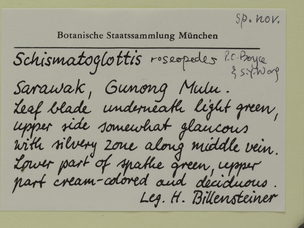 sp. nov.
Botanische Staatssammlung München
Schismatoglottis roseopedes P.C. Boyce
& S.Y. Wong
Sarawak, Gunong Mulu.
Leaf blade underneath light green,
upper side somewhat glaucous
with silvery zone along middle vein.
Lower part of spathe green, upper
part cream-colored and deciduous.
Leg. H. Billensteiner